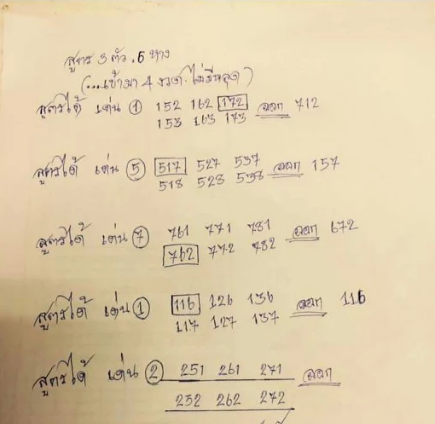 สูตร 3 ตัว .6 หาง
(...เข้ามา 4 งวด.ไม่มีหลุด)
สูตรได้ เด่น 1 152 162 172 ออก 712
153 163 173
สูตรได้ เด่น 5 517 527 537 ออก 157
518 528 538
สูตรได้ เด่น 7 761 771 781 ออก 672
762 772 782
สูตรได้ เด่น 1 116 126 136 ออก 116
117 127 137
สูตรได้ เด่น 2 251 261 271 ออก
252 262 272